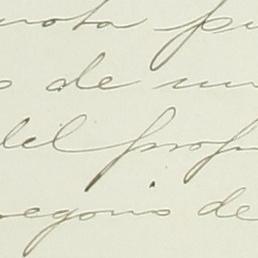 nota pu
s de un
del prop
regorio de